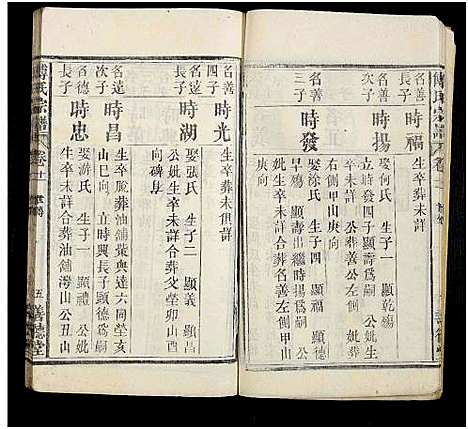 名善
長子
時福
生卒葬未詳
名善
次子
時揚
娶何氏 生子一 顯乾殤
以時發四子顯壽爲嗣 公妣生
卒未詳 公葬善公左側甲山
庚向
名善
三子
時發
娶涂氏 生子四 顯福 顯德
早殤 顯壽出繼時揚爲嗣 公
妣生卒未詳合葬善公左側甲
右側甲山庚向
名善
四子
時光
生卒葬未俱詳
名達
長子
時湖
娶張氏 生子二 顯義 顯昌
公妣生卒未詳合葬父塋卯山酉
向
名達
次子
時昌
生卒脫葬油舖柴與達六同塋
山巳向 立時興長子顯德爲嗣
名德
長子
時忠
娶游氏 生子一 顯禮 公妣
生卒未詳合葬油舖灣山公丑山
傅氏宗譜
卷十
五
善德堂